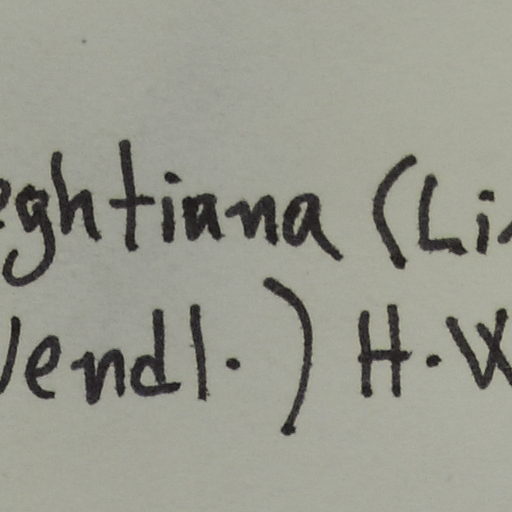 eghtiana (Li
Wendl.) H.W